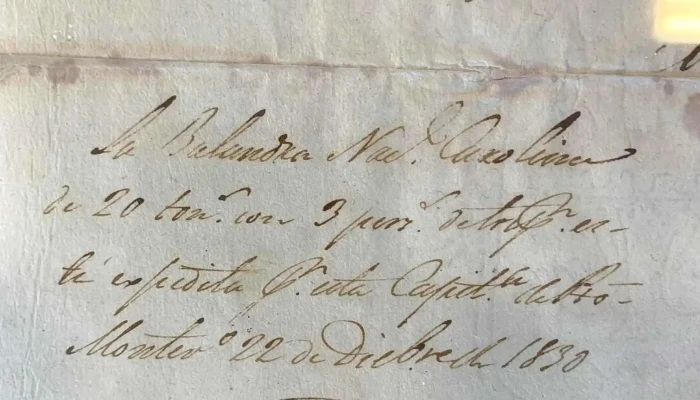 La Balandra Nacl. Carolina
de 20 ton.s con 3 pers.s de trip.n es-
tá expedita p.r esta Capit.ía de Pto-
Montevo 22 de Diebre de 1830